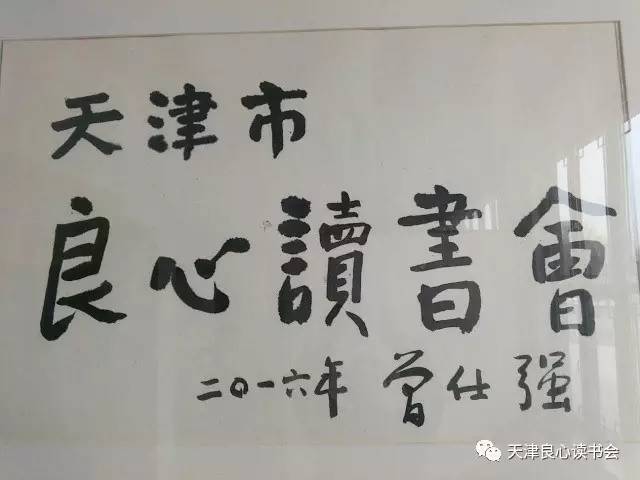 天津市
良心讀書會
二〇一六年 曾仕强
天津良心读书会